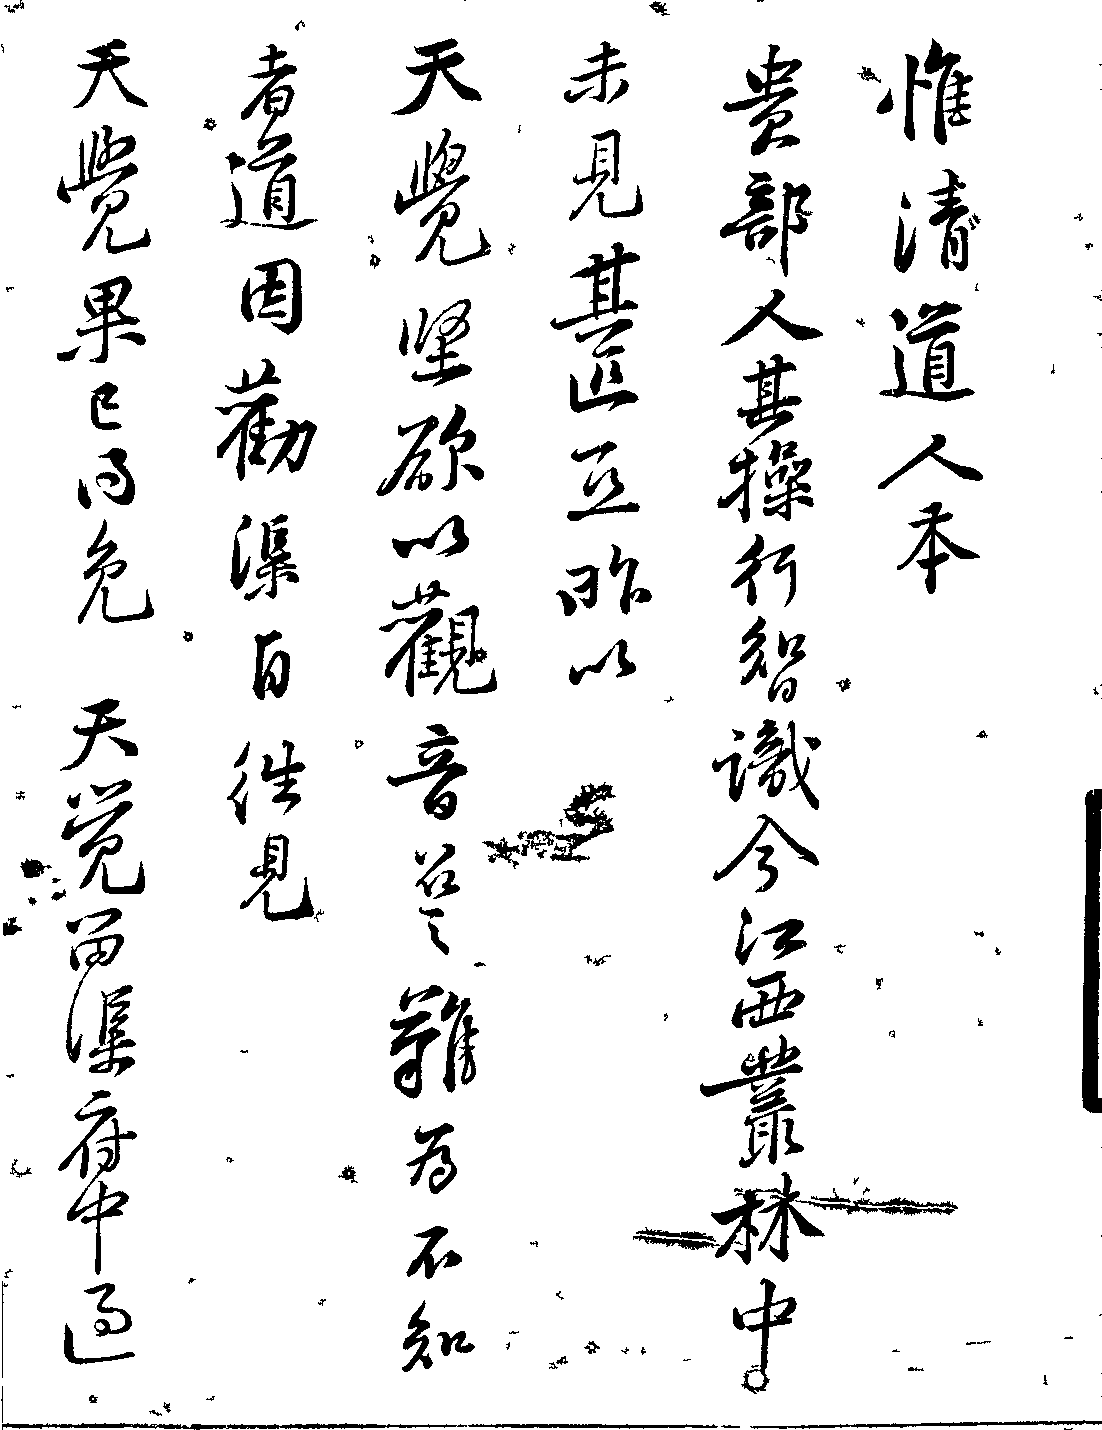 惟清道人本
贵部人其操行智識今江西叢林中
未見其匹亞昨以
天覺坚欲以觀音召之難為不知
者道因勸渠自往見
天覺果已得免 天覺留渠府中過